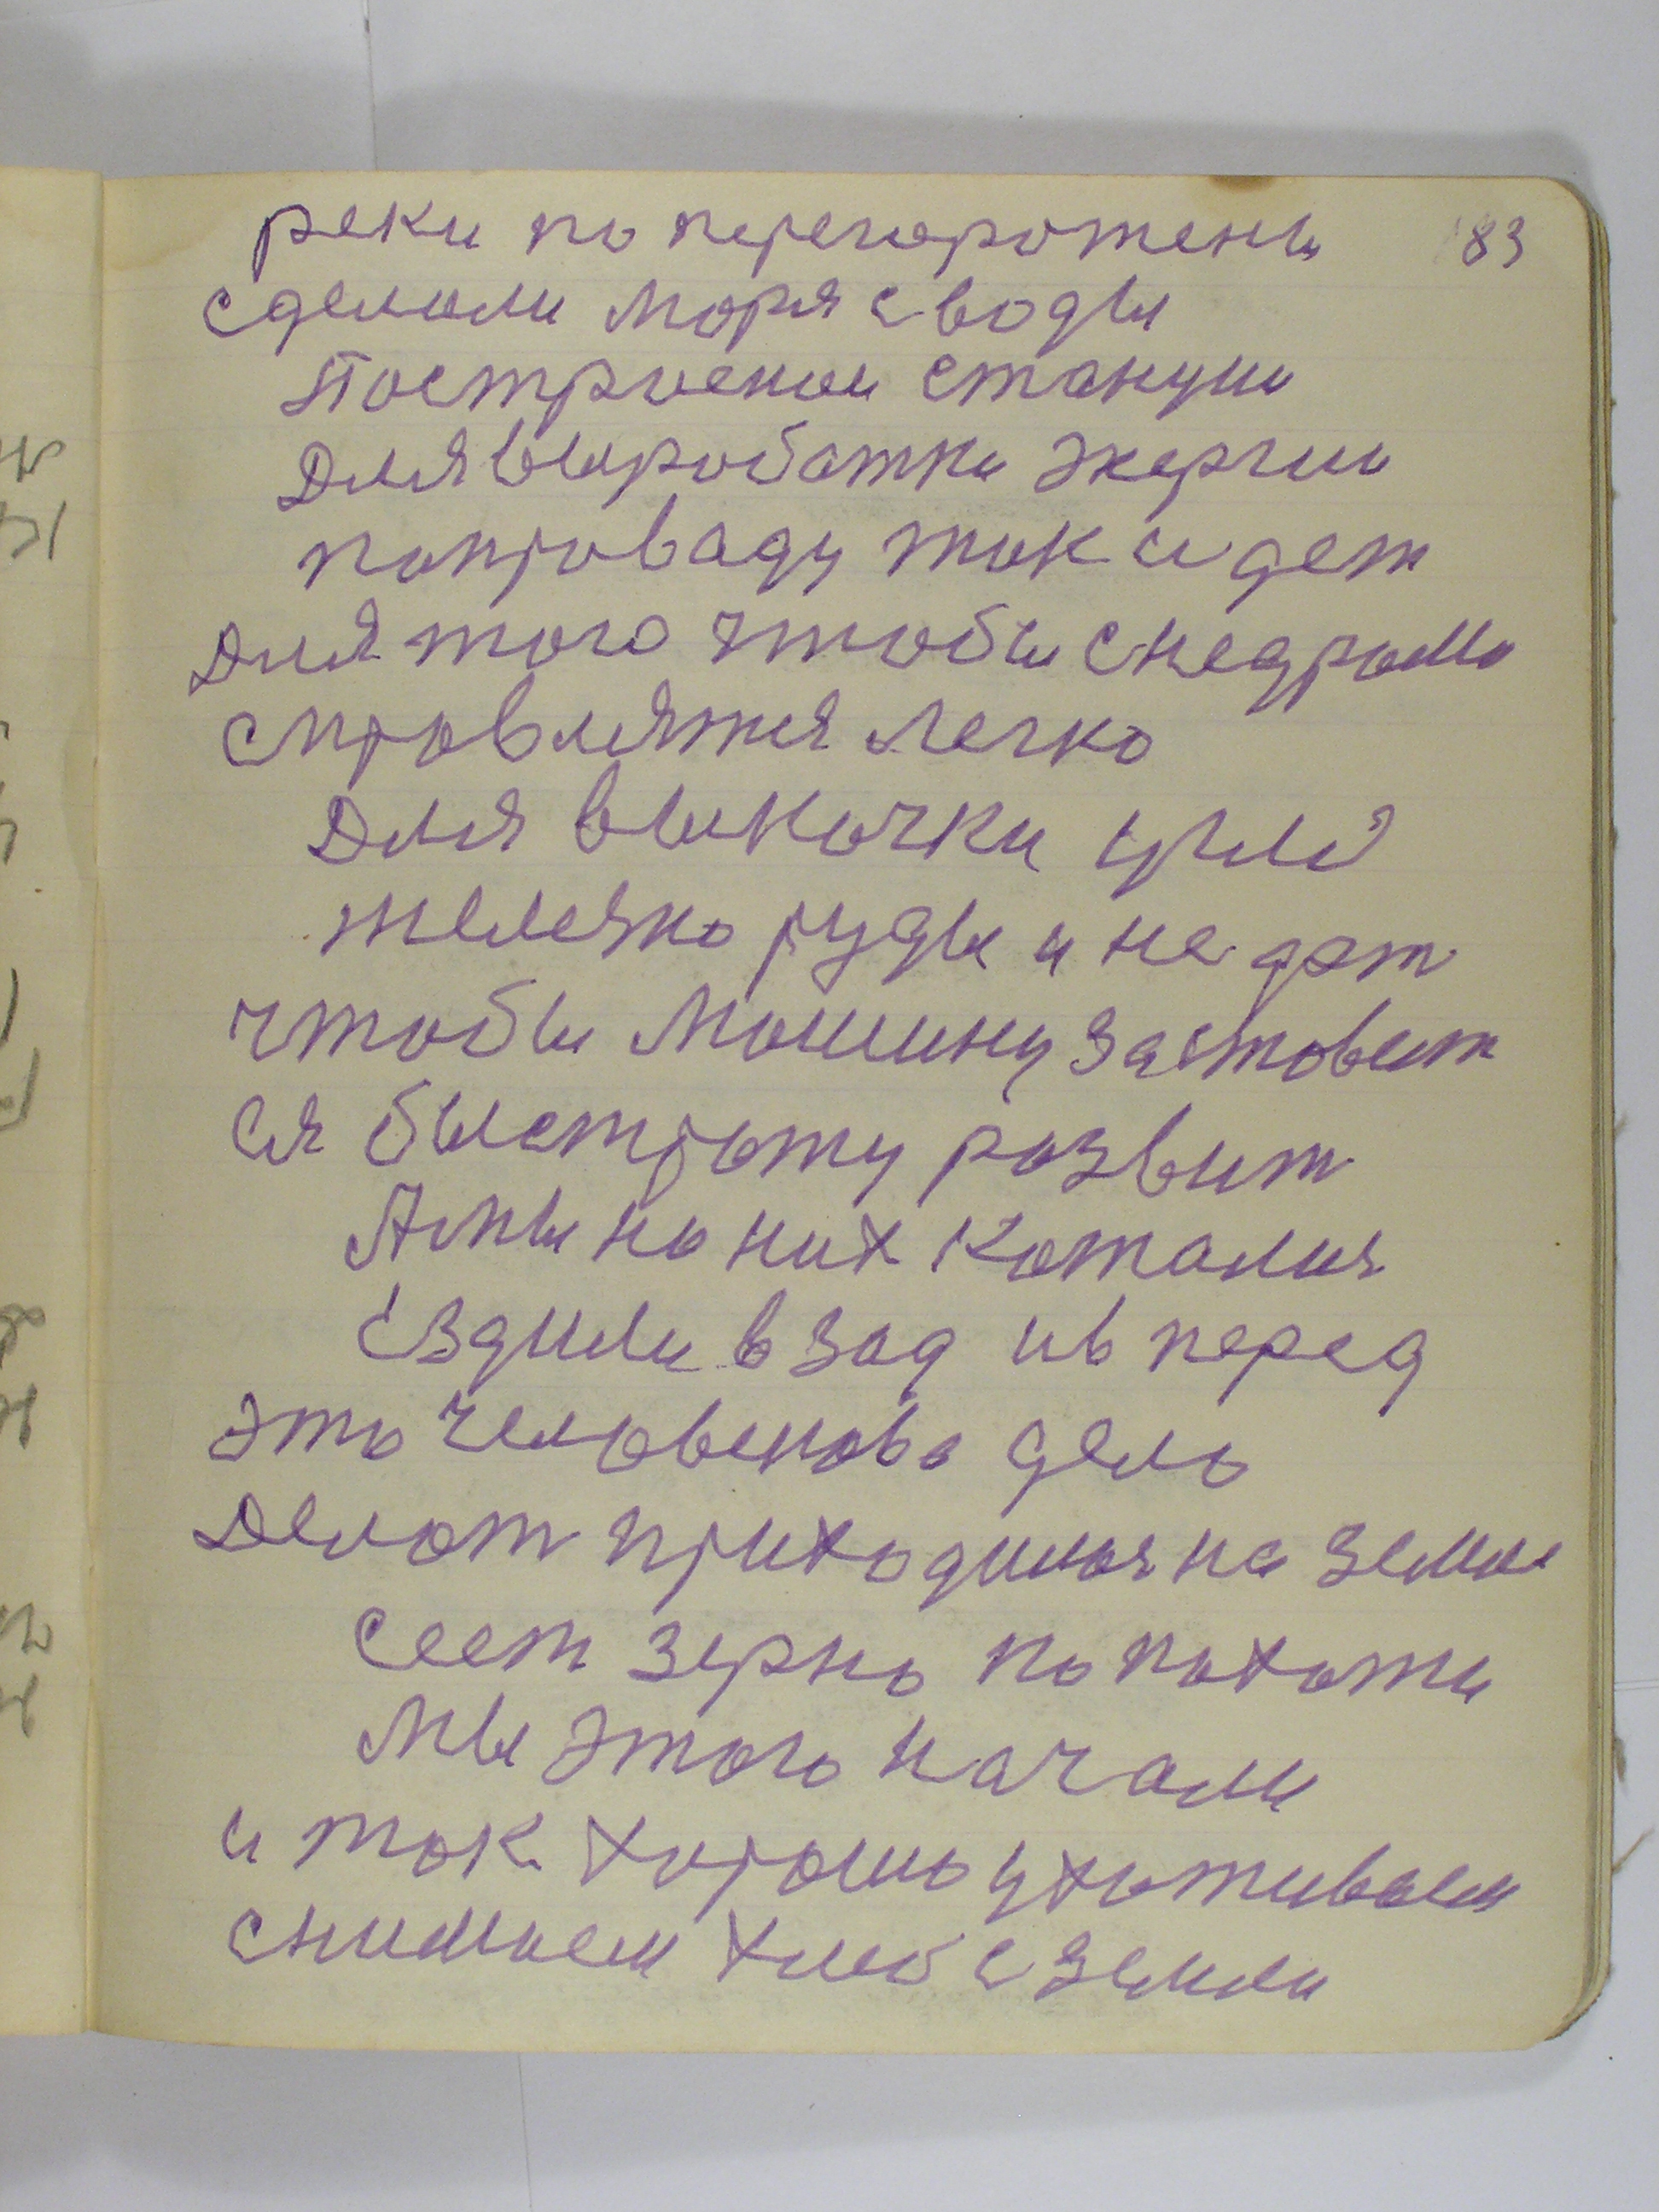 реки по перегорожены 83
сделали моря с воды
Построены станции
Для выработки экергии
попроваду ток идет
Для того чтобы снедрами
справлятся легко
Для выкачки
железно руды и
чтобы машину заставит
ся быстроту развит
А мы на них каталия
ездили взад ив перед
это человеково дело
Делат приходился на земли
сеет зерно по пахоти
мы этого начали
и так хорошо ухаживаем
снимаем хлеб с земли